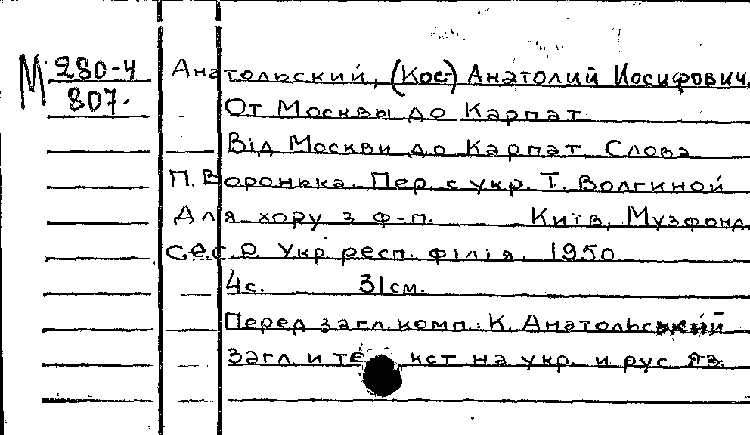 М 280-4
807.
Анатольский, (Кос.) Анатолий Иосифович.
От Москвы до Карпат
Від Москви до Карпат. Слова
П. Воронька. Пер. с укр. Т. Волгиной
Для хору з ф-п. Київ, Музфонд
С.С.С.Р. Укр респ. філія, 1950
4с. 31см.
Перед загл. комп.: К. Анатольський
Загл и текст на укр. и рус яз.